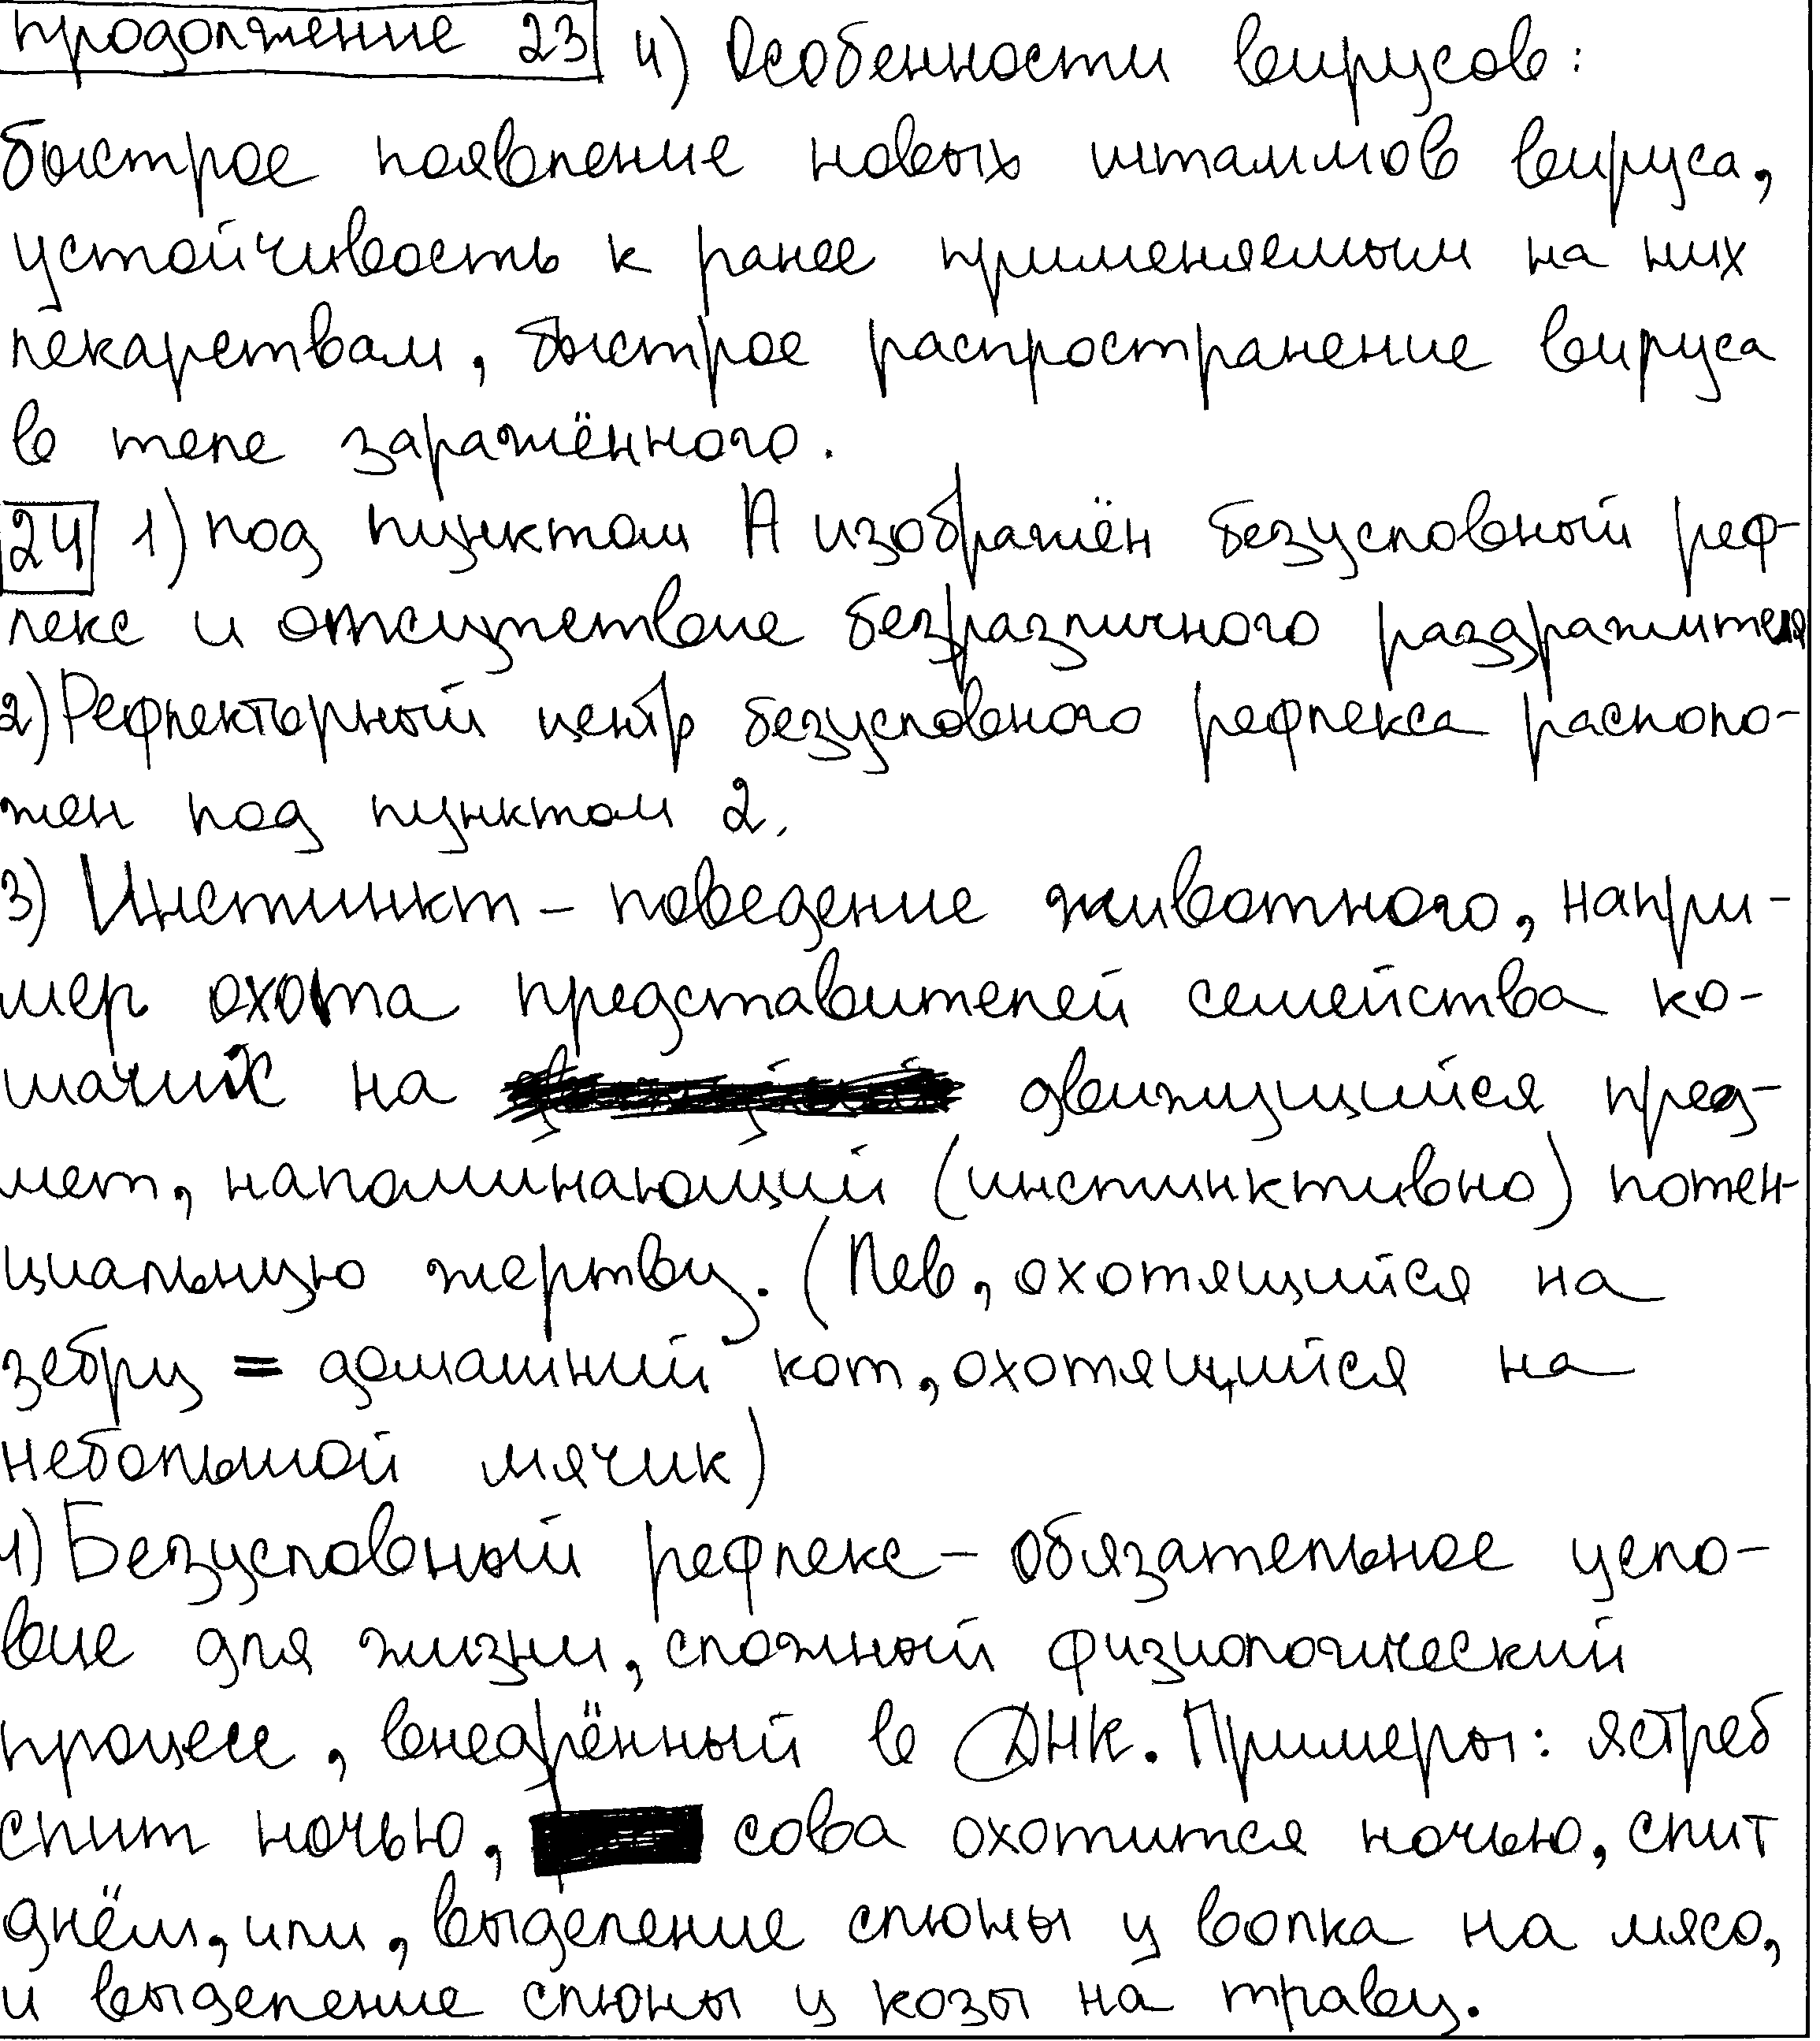 продолжение 23 4) Особенности вирусов:
быстрое появление новых штаммов вируса,
устойчивость к ранее применяемым на них
лекарствам, быстрое распространение вируса
в теле заражённого.
24 1) под пунктом А изображён безусловный реф-
лекс и отсутствие безразличного раздражителя
2) Рефлекторный центр безусловного рефлекса располо-
жен под пунктом 2.
3) Инстинкт – поведение животного, напри-
мер охота представителей семейства ко-
шачих на движущийся пред-
мет, напоминающий (инстинктивно) потен-
циальную жертву. (Лев, охотящийся на
зебру = домашний кот, охотящийся на
небольшой мячик)
4) Безусловный рефлекс – обязательное усло-
вие для жизни, сложный физиологический
процесс, внедрённый в ДНК. Примеры: ястреб
спит ночью, сова охотится ночью, спит
днём, или, выделение слюны у волка на мясо,
и выделение слюны у козы на траву.